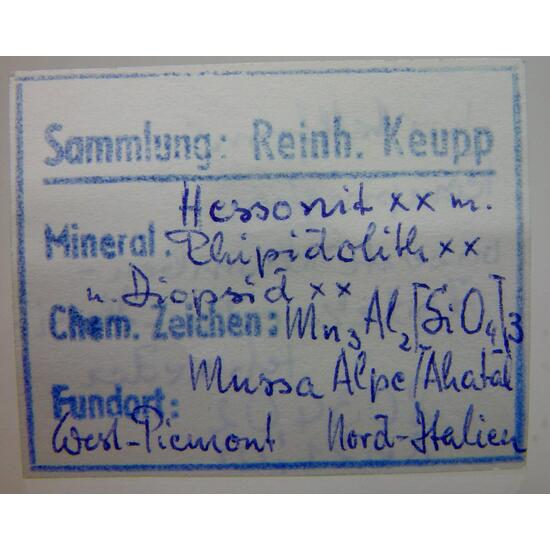 Sammlung: Reinh. Keupp
Hessonit xx m.
Mineral: Rhipidolith xx
u. Diopsid xx
Chem. Zeichen: Mn3Al2[SiO4]3
Mussa Alpe/Alatal
Fundort:
West-Piemont Nord-Italien